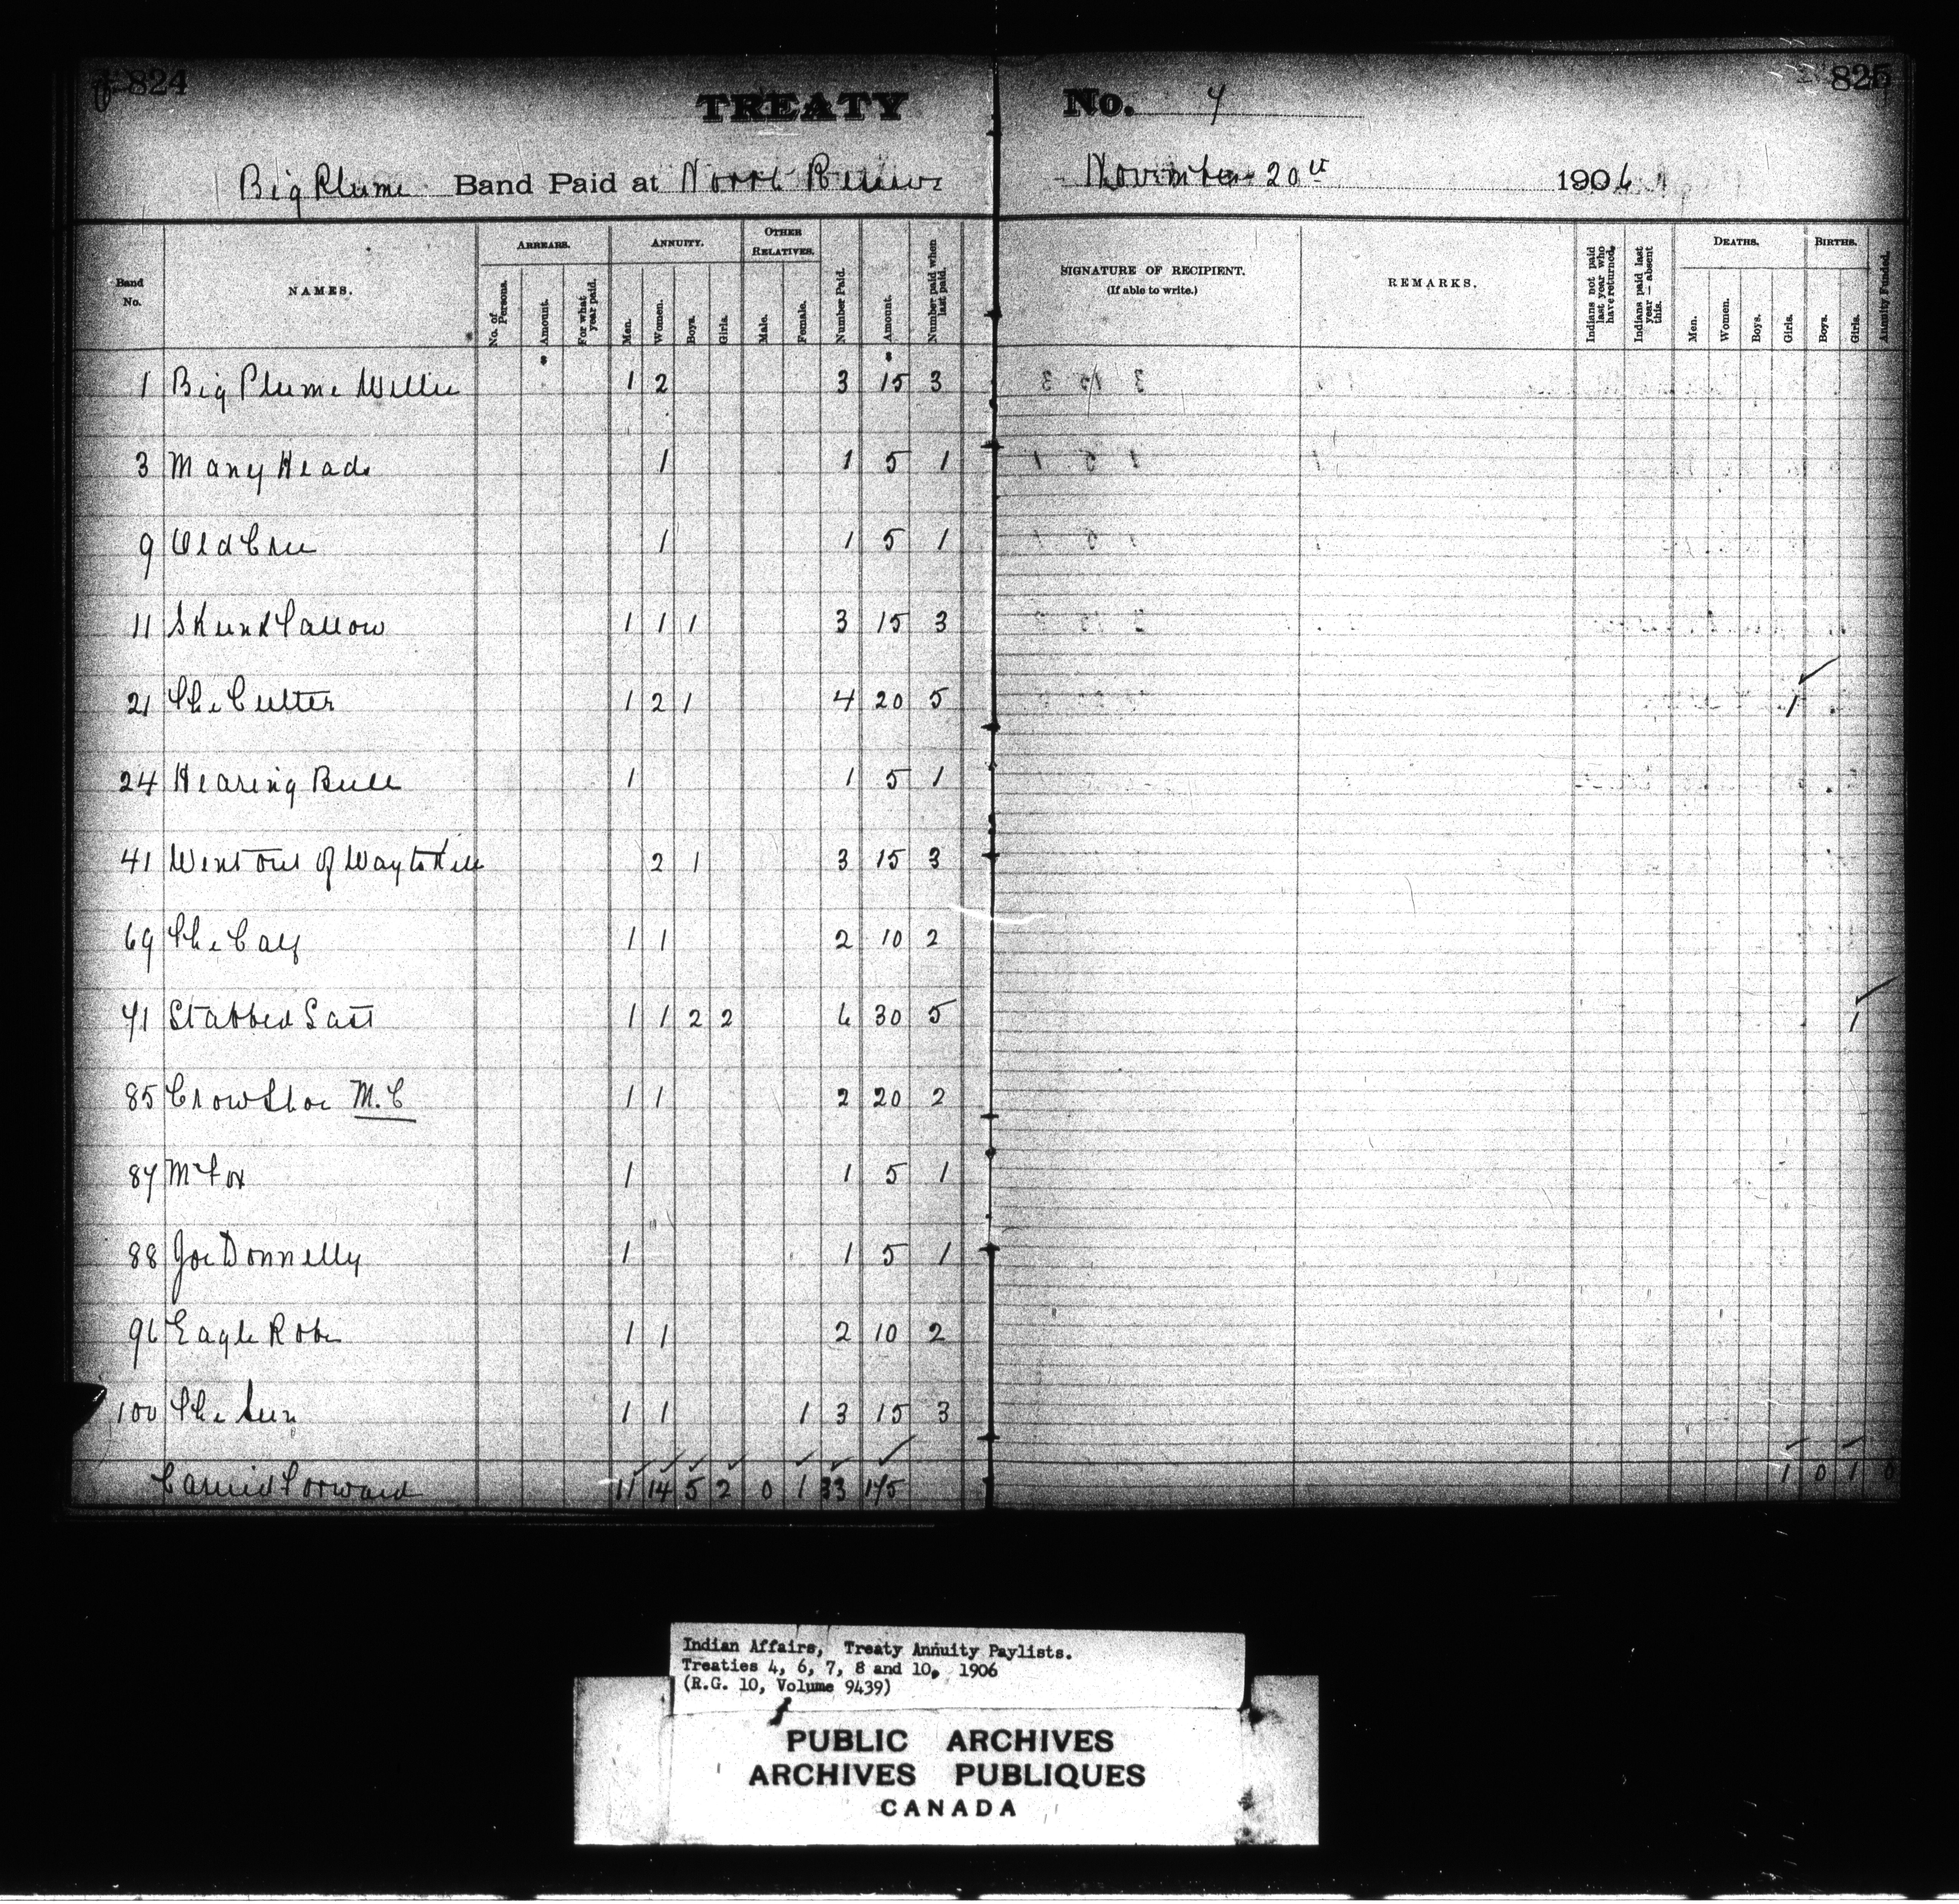 824
825
TREATY No. 7
Big Plume Band Paid at North Reserve November 20th 1906
Band No.
NAMES.
ARREARS.
No. of Persons.
Amount.
For what year paid.
ANNUITY.
Men.
Women.
Boys.
Girls.
OTHER RELATIVES.
Male.
Female.
Number Paid.
Amount.
Number paid when last paid.
SIGNATURE OF RECIPIENT.
(If able to write.)
REMARKS.
Indians not paid last year who have returned.
Indians paid last year — absent this.
DEATHS.
Men.
Women.
Boys.
Girls.
BIRTHS.
Boys.
Girls.
Annuity Funded.
1 Big Plume Willie 1 2 3 15 3
3 Many Heads 1 1 5 1
9 Old Cree 1 1 5 1
11 Skunk Tallow 1 1 1 3 15 3
21 The Cutter 1 2 1 4 20 5 1
24 Hearing Bull 1 1 5 1
41 Went out of Way to Kill 2 1 3 15 3
69 The Calf 1 1 2 10 2
71 Stabbed Last 1 1 2 2 6 30 5 1
85 Crow Shoe M.C 1 1 2 20 2
87 Mc Fox 1 1 5 1
88 Joe Donnelly 1 1 5 1
96 Eagle Robe 1 1 2 10 2
100 The Sun 1 1 1 3 15 3
Carried Forward 11 14 5 2 0 1 33 175 1 0 1 0
Indian Affairs, Treaty Annuity Paylists.
Treaties 4, 6, 7, 8 and 10, 1906
(R.G. 10, Volume 9439)
PUBLIC ARCHIVES
ARCHIVES PUBLIQUES
CANADA